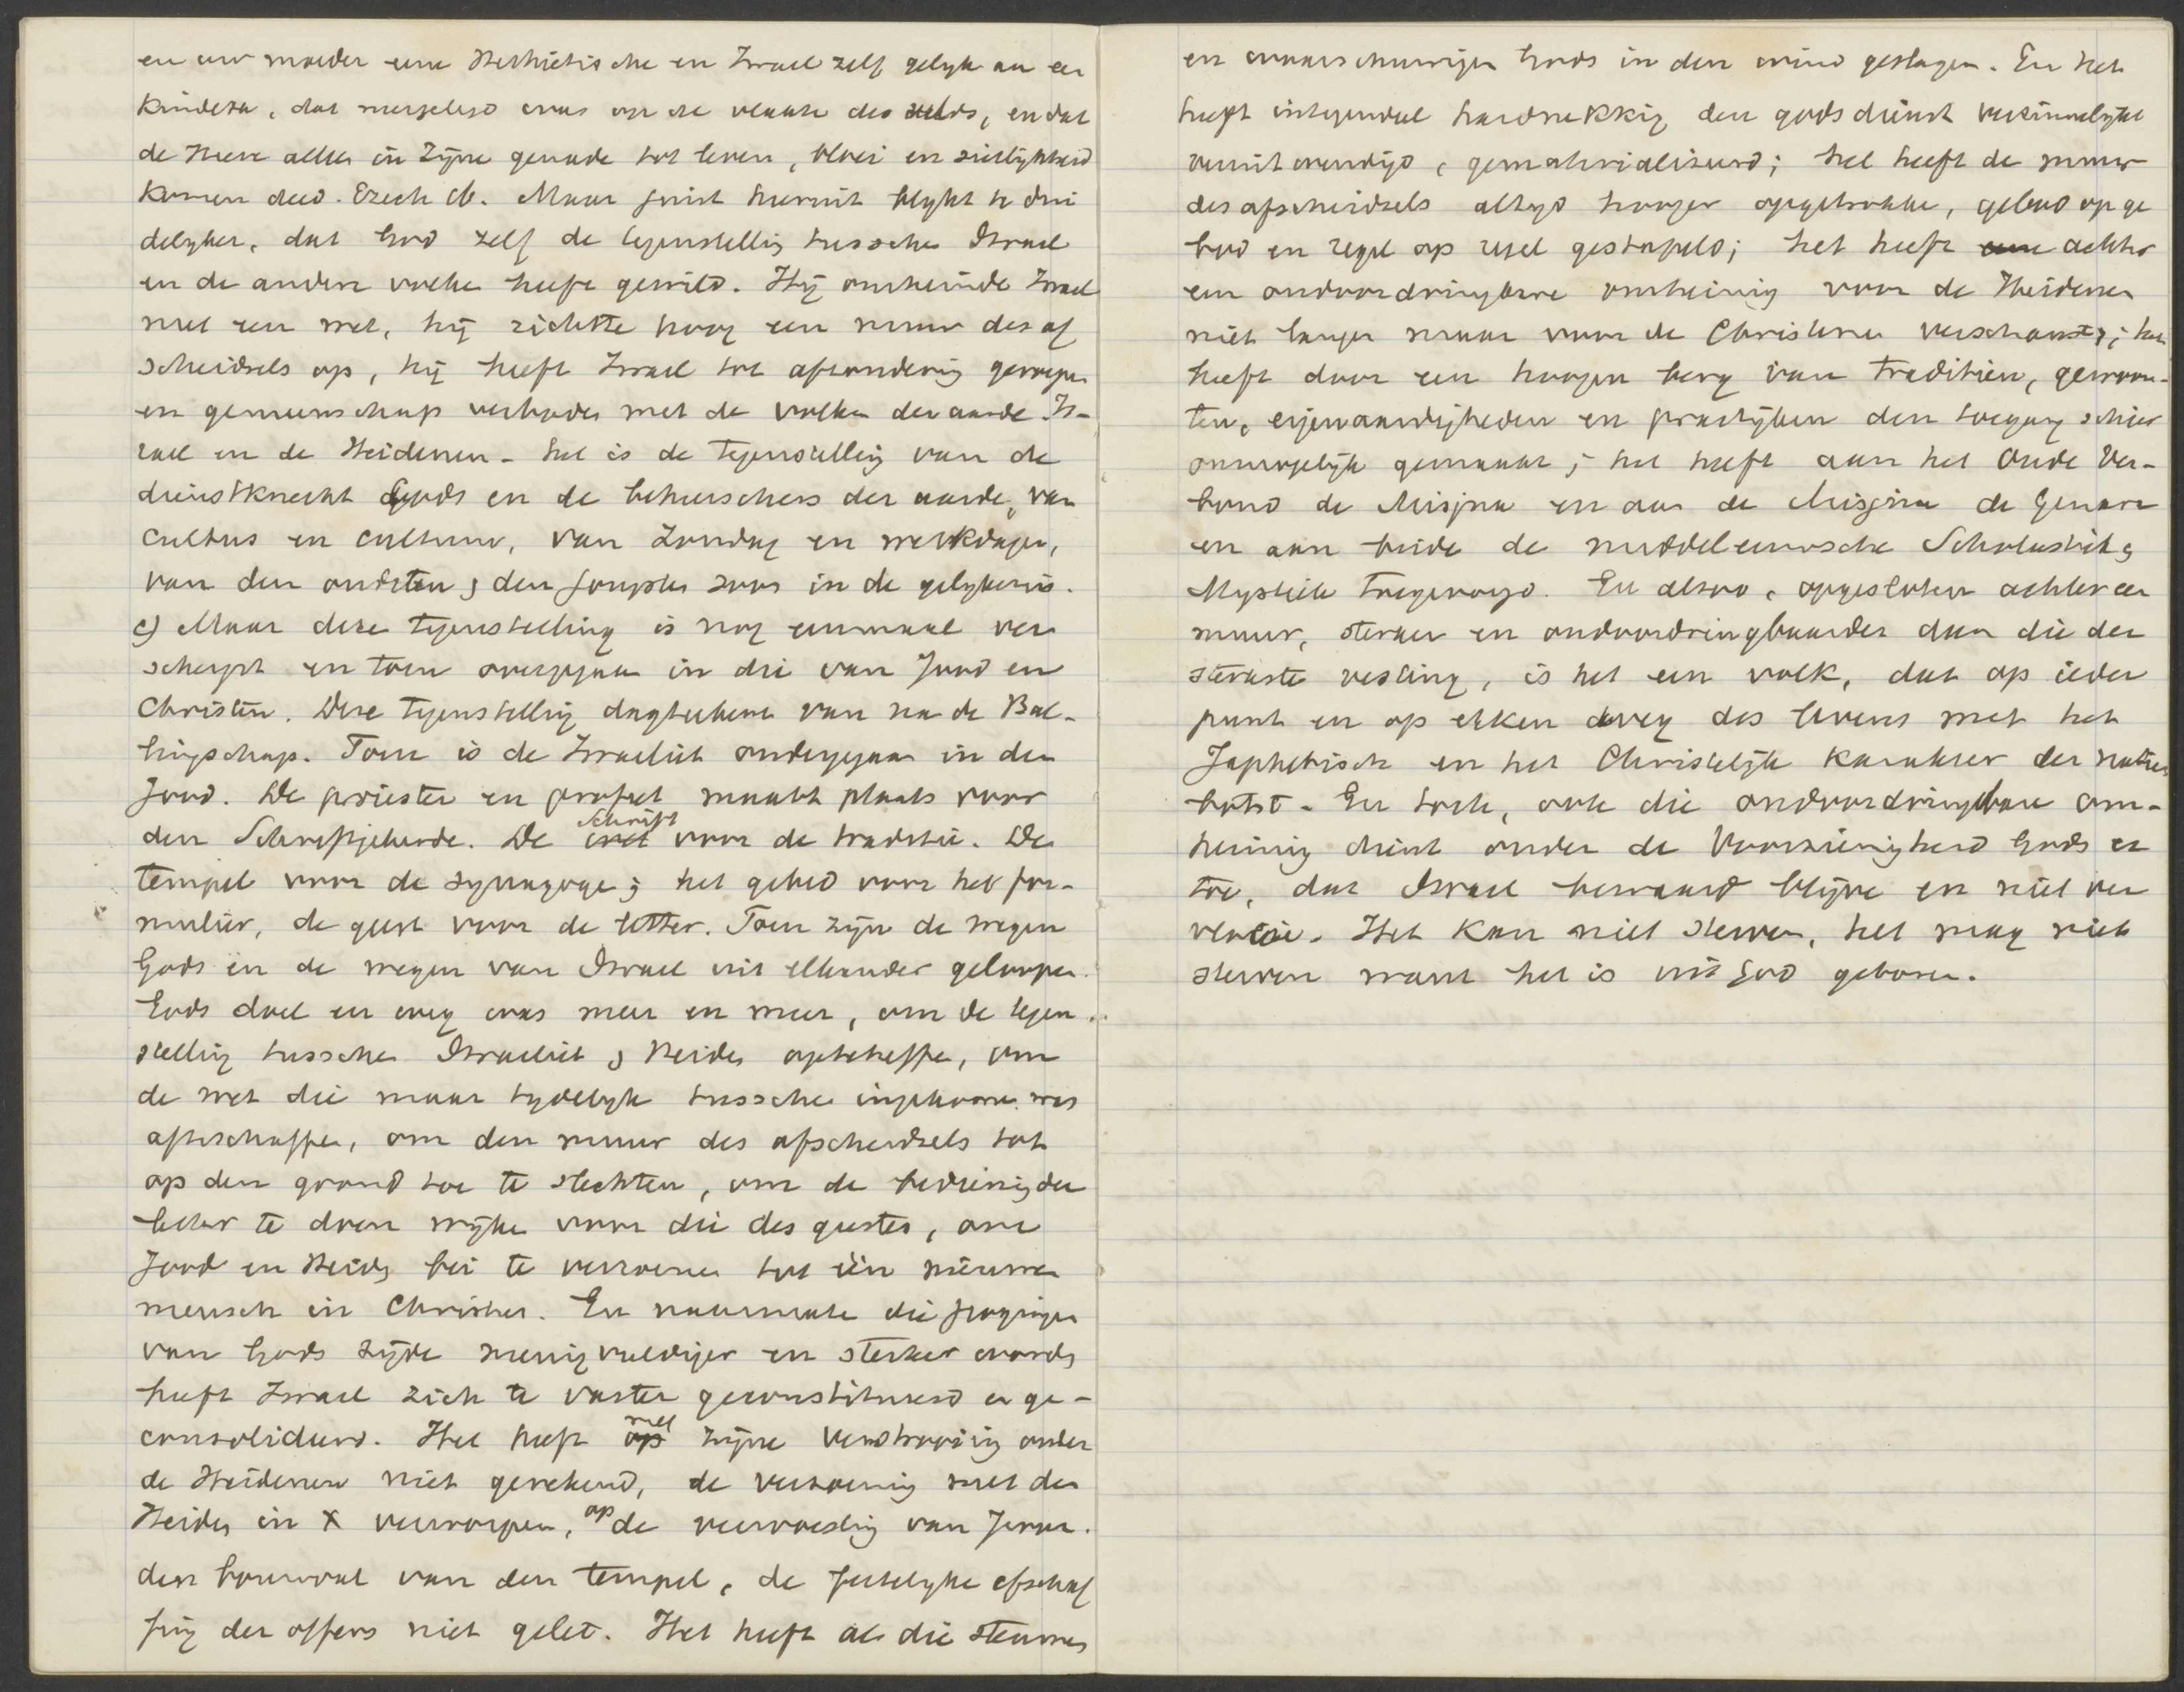 en uw moeder eene Hethietische en Israel zelf gelyk aan een
kindeke, dat neergeleid was op de vlakte des velds, en dat
de Heere alles in Zijne genade tot leven, bloei en sierlijkheid
komen deed. Ezech 16. Maar juist hieruit blijkt te dui
delyker, dat God zelf de tegenstelling tusschen Israel
en de andere volken heeft gewild. Hij omheinde Israel
met een wet, hij richtte hoog een muur des af
scheidsels op, hij heeft Israel tot afzondering geroepen
en gemeenschap verboden met de volken der aarde. Is-
rael en de Heidenen - het is de tegenstelling van de
dienstknecht Gods en de beheerschers der aarde, van
cultus en cultuur, van Zondag en werkdagen,
van den oudsten & den jongsten zoon in de gelykenis.
c) Maar deze tegenstelling is nog eenmaal ver
scherpt en toen overgegaan in die van Jood en
Christen. Deze tegenstelling dagteekent van na de Bal-
lingschap. Toen is de Israeliet ondergegaan in den
Jood. De priester en profeet maakt plaats voor
den Schriftgeleerde. De Schrift voor de traditie. De
tempel voor de synagoge; het gebed voor het for-
mulier, de geest voor de letter. Toen zijn de wegen
Gods en de wegen van Israel uit elkander geloopen.
Gods doel en weg was meer en meer, om de tegen
stelling tusschen Israeliet & Heiden opteheffen, om
de wet die maar tydelyk tusschen ingekomen was
afteschaffen, om den muur des afscheidsels tot
op den grond toe te slechten, om de bediening der
letter te doen wijken voor die des geestes, om
Jood en Heiden bei te verzoenen tot één nieuwen
mensch in Christus. En naarmate die pogingen
van Gods zijde menigvuldiger en sterker werden
heeft Israel zich te vaster geconstitueerd en ge-
consolideerd. Het heeft met zijne verstrooiing onder
de Heidenen niet gerekend, de verzoening met den
Heiden in X verworpen, op de verwoesting van Jeruz.
den bouwval van den tempel, de feitelyke afschaf
fing der offers niet gelet. Het heeft al die stemmen
en waarschuwingen Gods in den wind geslagen. En het
heeft integendeel hardnekkig den godsdienst verzinnelykt
veruitwendigd, gematerialiseerd; het heeft de muur
des afscheidsels altyd hooger opgetrokken, gebod op ge
bod en regel op regel gestapeld; het heeft achter
een ondoordringbare omheining voor de Heidenen
niet langer maar voor de Christenen verschanst; het
heeft door een hoogen berg van tradities, gewoon-
ten, eigenaardigheden en practijken den toegang schier
onmogelijk gemaakt; het heeft aan het Oude Ver-
bond de Misjna en aan de Misjna de Gemara
en aan beide de middeleeuwsche Scholastiek &
Mystiek toegevoegd. En alzoo, opgesloten achter een
muur, sterker en ondoordringbaarder dan die der
sterkste vesting, is het een volk, dat op ieder
punt en op elken weg des levens met het
Japhetisch en het Christelijk karakter der natien
botst. En toch, ook die ondoordringbare om-
heining dient onder de Voorzienigheid Gods er
toe, dat Israel bewaard blijve en niet ver
vloeie. Het kan niet sterven, het mag niet
sterven want het is uit God geboren.